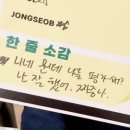 JONGSEOB
한 줄 소감
니네 뭔데 나를 평가해?
난 잘 했어. 짜증나.